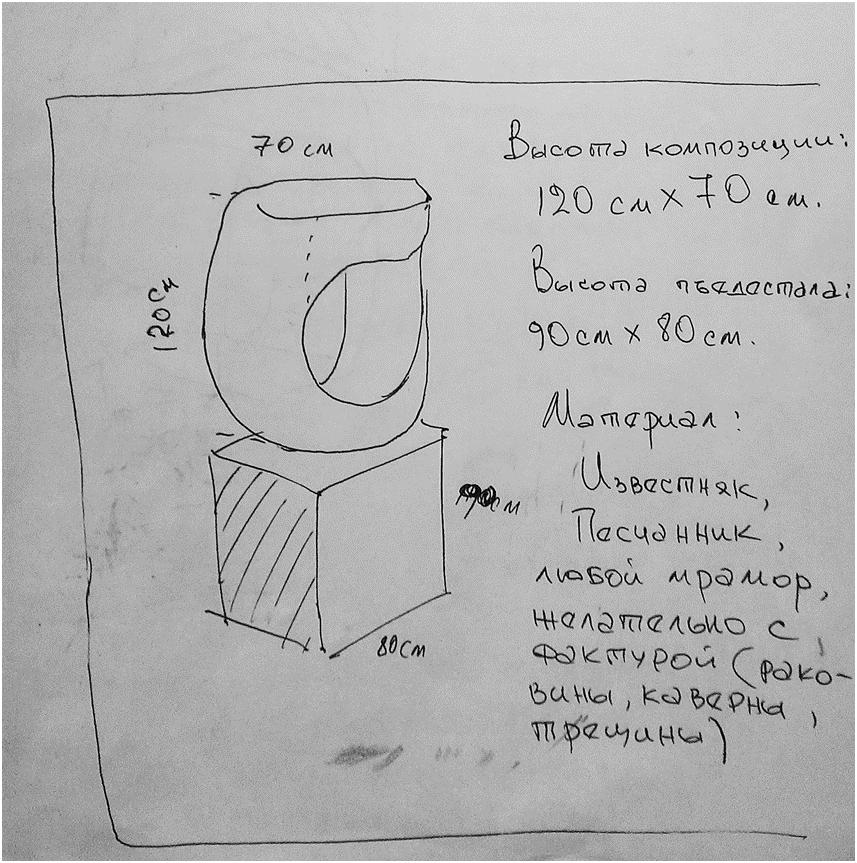 70 см
120 см
Высота композиции:
120 см х 70 см.
Высота пьедестала:
90 см х 80 см.
Материал:
Известняк,
Песчанник,
любой мрамор,
желательно с
фактурой (рако-
вины, каверны,
трещины)
см
80 см